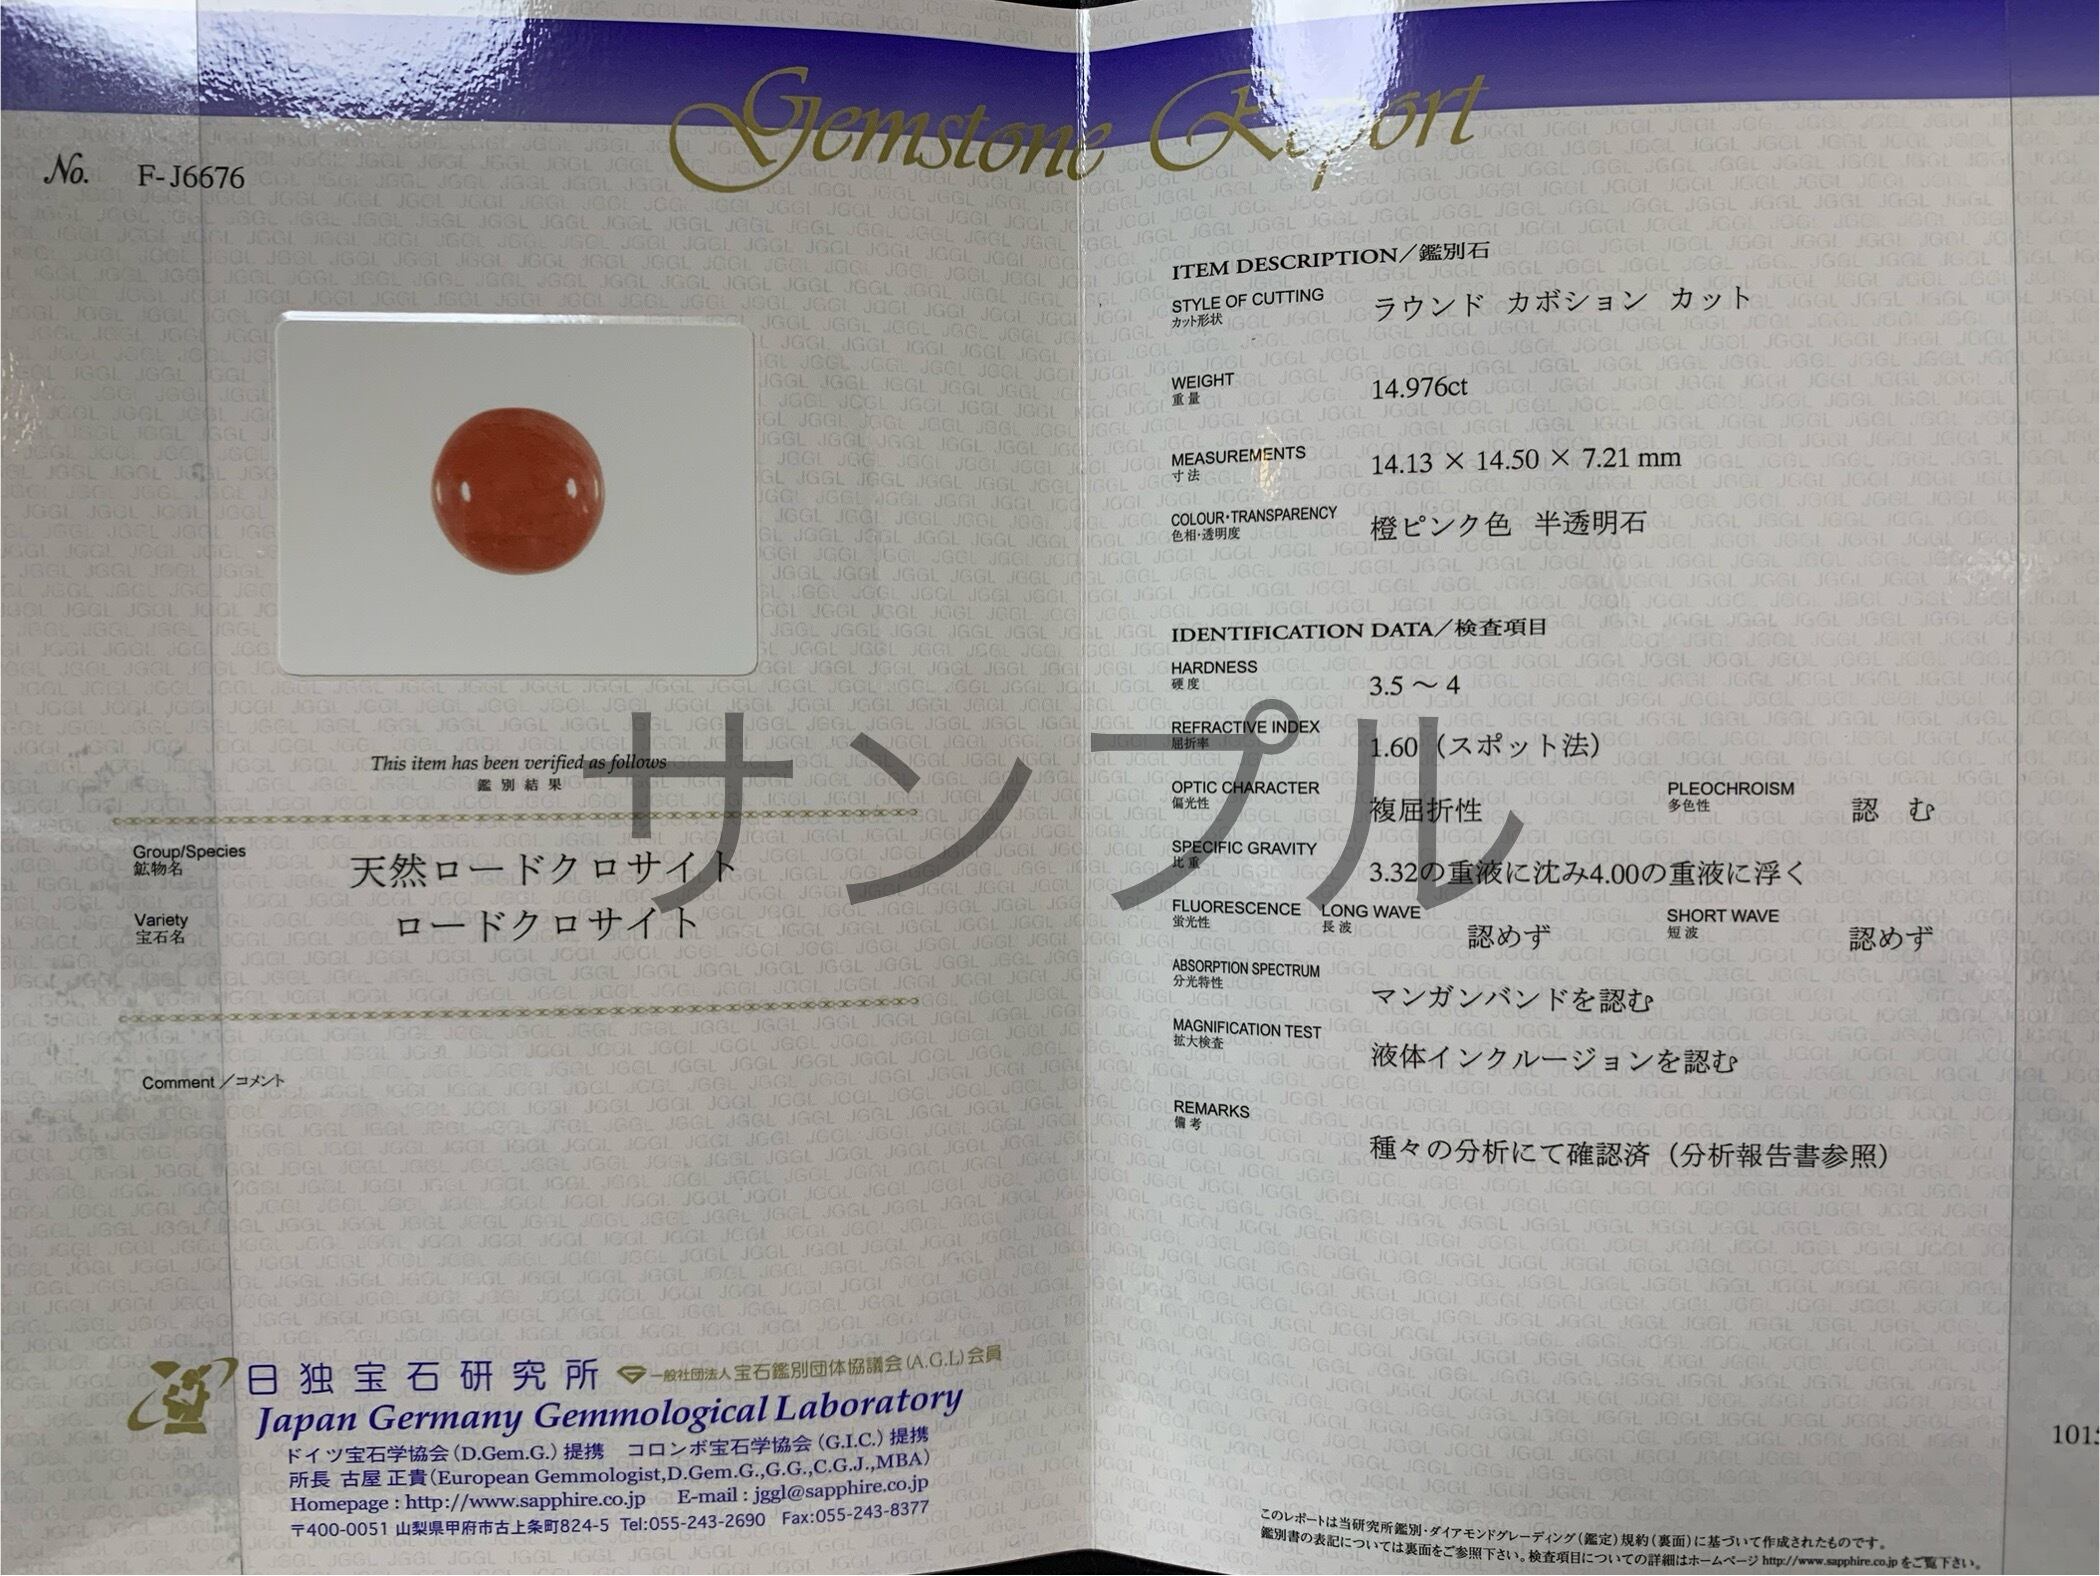 Gemstone Report
No. F-J6676
This item has been verified as follows
鑑別結果
Group/Species
鉱物名
天然ロードクロサイト
Variety
宝石名
ロードクロサイト
Comment／コメント
日独宝石研究所
一般社団法人 宝石鑑別団体協議会(A.G.L)会員
Japan Germany Gemmological Laboratory
ドイツ宝石学協会(D.Gem.G.)提携 コロンボ宝石学協会(G.I.C.)提携
所長 古屋 正貴(European Gemmologist,D.Gem.G.,G.G.,C.G.J.,MBA)
Homepage : http://www.sapphire.co.jp E-mail : jggl@sapphire.co.jp
〒400-0051 山梨県甲府市古上条町824-5 Tel:055-243-2690 Fax:055-243-8377
ITEM DESCRIPTION／鑑別石
STYLE OF CUTTING
カット形状
ラウンド カボション カット
WEIGHT
重量
14.976ct
MEASUREMENTS
寸法
14.13 × 14.50 × 7.21 mm
COLOUR・TRANSPARENCY
色相・透明度
橙ピンク色 半透明石
IDENTIFICATION DATA／検査項目
HARDNESS
硬度
3.5 ～ 4
REFRACTIVE INDEX
屈折率
1.60（スポット法）
OPTIC CHARACTER
偏光性
複屈折性
PLEOCHROISM
多色性
認 む
SPECIFIC GRAVITY
比重
3.32の重液に沈み4.00の重液に浮く
FLUORESCENCE
蛍光性
LONG WAVE
長波
認めず
SHORT WAVE
短波
認めず
ABSORPTION SPECTRUM
分光特性
マンガンバンドを認む
MAGNIFICATION TEST
拡大検査
液体インクルージョンを認む
REMARKS
備考
種々の分析にて確認済（分析報告書参照）
1015
このレポートは当研究所鑑別・ダイアモンドグレーディング(鑑定)規約(裏面)に基づいて作成されたものです。
鑑別書の表記については裏面をご参照下さい。検査項目についての詳細はホームページ http://www.sapphire.co.jp をご覧下さい。
サンプル